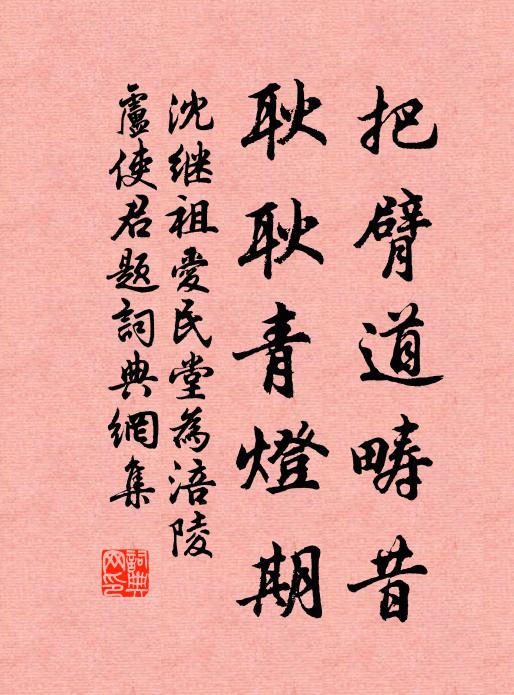 把臂道畴昔
耿耿青燈期
沈继祖愛民堂為涪陵
盧使君題詞典網集
詞典网印